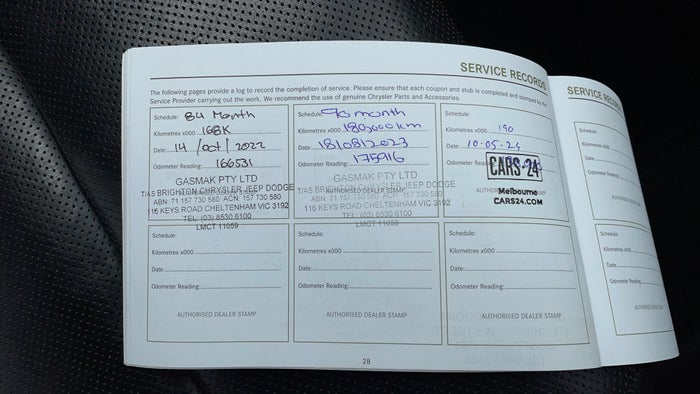 SERVICE RECORDS
The following pages provide a log to record the completion of service. Please ensure that each coupon and stub is completed and stamped by the
Service Provider carrying out the work. We recommend the use of genuine Chrysler Parts and Accessories.
Schedule: 84 Month
Kilometres x000 168K
Date: 14 / Oct / 2022
Odometer Reading: 166531
GASMAK PTY LTD
T/AS BRIGHTON CHRYSLER JEEP DODGE
ABN: 71 157 730 580 ACN: 157 730 580
116 KEYS ROAD CHELTENHAM VIC 3192
TEL: (03) 8530 6100
LMCT 11059
Schedule: 96 month
Kilometres x000 180,000 km
Date: 18/08/2023
Odometer Reading: 175916
GASMAK PTY LTD
T/AS BRIGHTON CHRYSLER JEEP DODGE
AUTHORISED DEALER STAMP
ABN: 71 157 730 580 ACN: 157 730 580
116 KEYS ROAD CHELTENHAM VIC 3192
TEL: (03) 8530 6100
LMCT 11059
Schedule:
Kilometres x000 190
Date: 10-05-24
Odometer Reading:
CARS 24
Melbourne
CARS24.COM
Schedule:
Kilometres x000
Date:
Odometer Reading:
AUTHORISED DEALER STAMP
Schedule:
Kilometres x000
Date:
Odometer Reading:
AUTHORISED DEALER STAMP
Schedule:
Kilometres x000
Date:
Odometer Reading:
AUTHORISED DEALER STAMP
28
SERVICE RECOR
Schedule:
Kilometres x000
Date:
Odometer Reading:
Schedule:
Kilometres x000
Date:
Odometer Reading:
AUTHORISED DEA